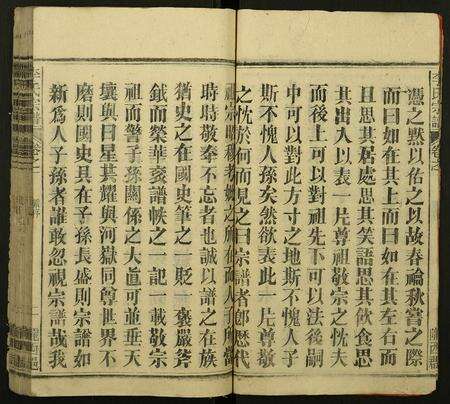 憑之默以佑之以故春禴秋嘗之際
而曰如在其上而曰如在其左右而
且思其居處思其笑語思其飲食思
其出入以表一片尊祖敬宗之忱夫
而後上可以對祖先下可以法後嗣
中可以對此方寸之地斯不愧人子
斯不愧人孫矣然欲表此一片尊敬
之忱於何而見之曰宗譜者卽歷代
祖宗昭穆考妣之所在而人子所當
時時敬奉不忘者也誠以譜之在族
猶史之在國史筆之一貶一褒嚴斧
鉞而榮華衮譜帙之一記一載敬宗
祖而警子孫關係之大直可並垂天
壤與日星其耀與河嶽同尊世界不
磨則國史具在子孫長盛則宗譜如
新爲人子孫者誰敢忽視宗譜哉我
李氏宗譜
隴西郡